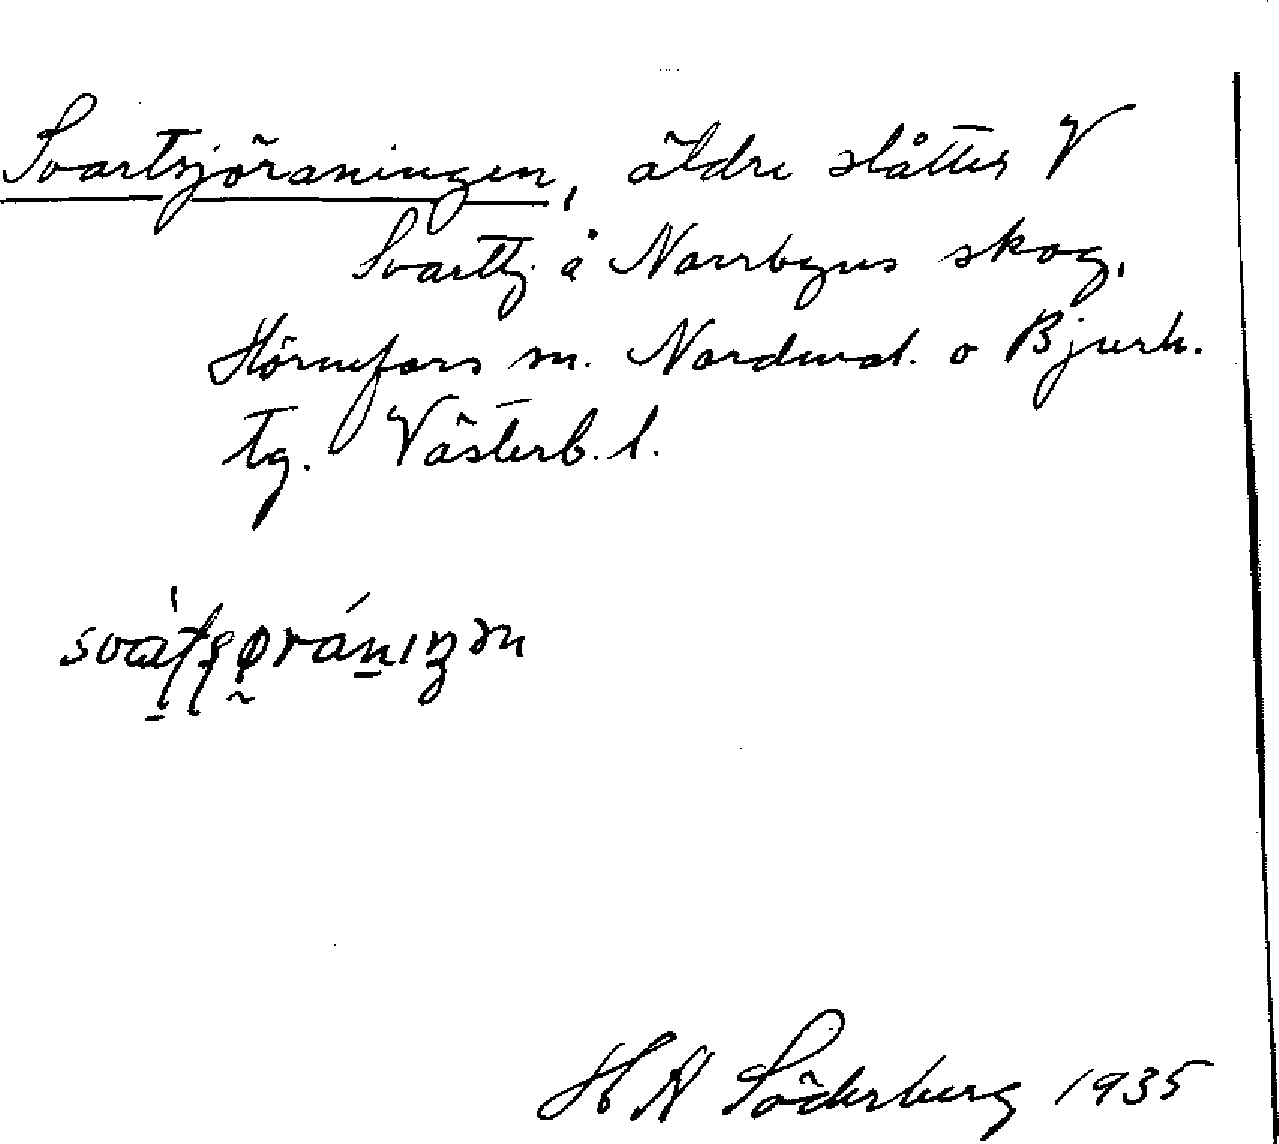 Svartsjöraningen, äldre slåtter V
Svarttj. å Norrbyns skog,
Hörnefors sn. Nordmal. o Bjurh.
tg. Västerb. l.
H A Söderberg 1935